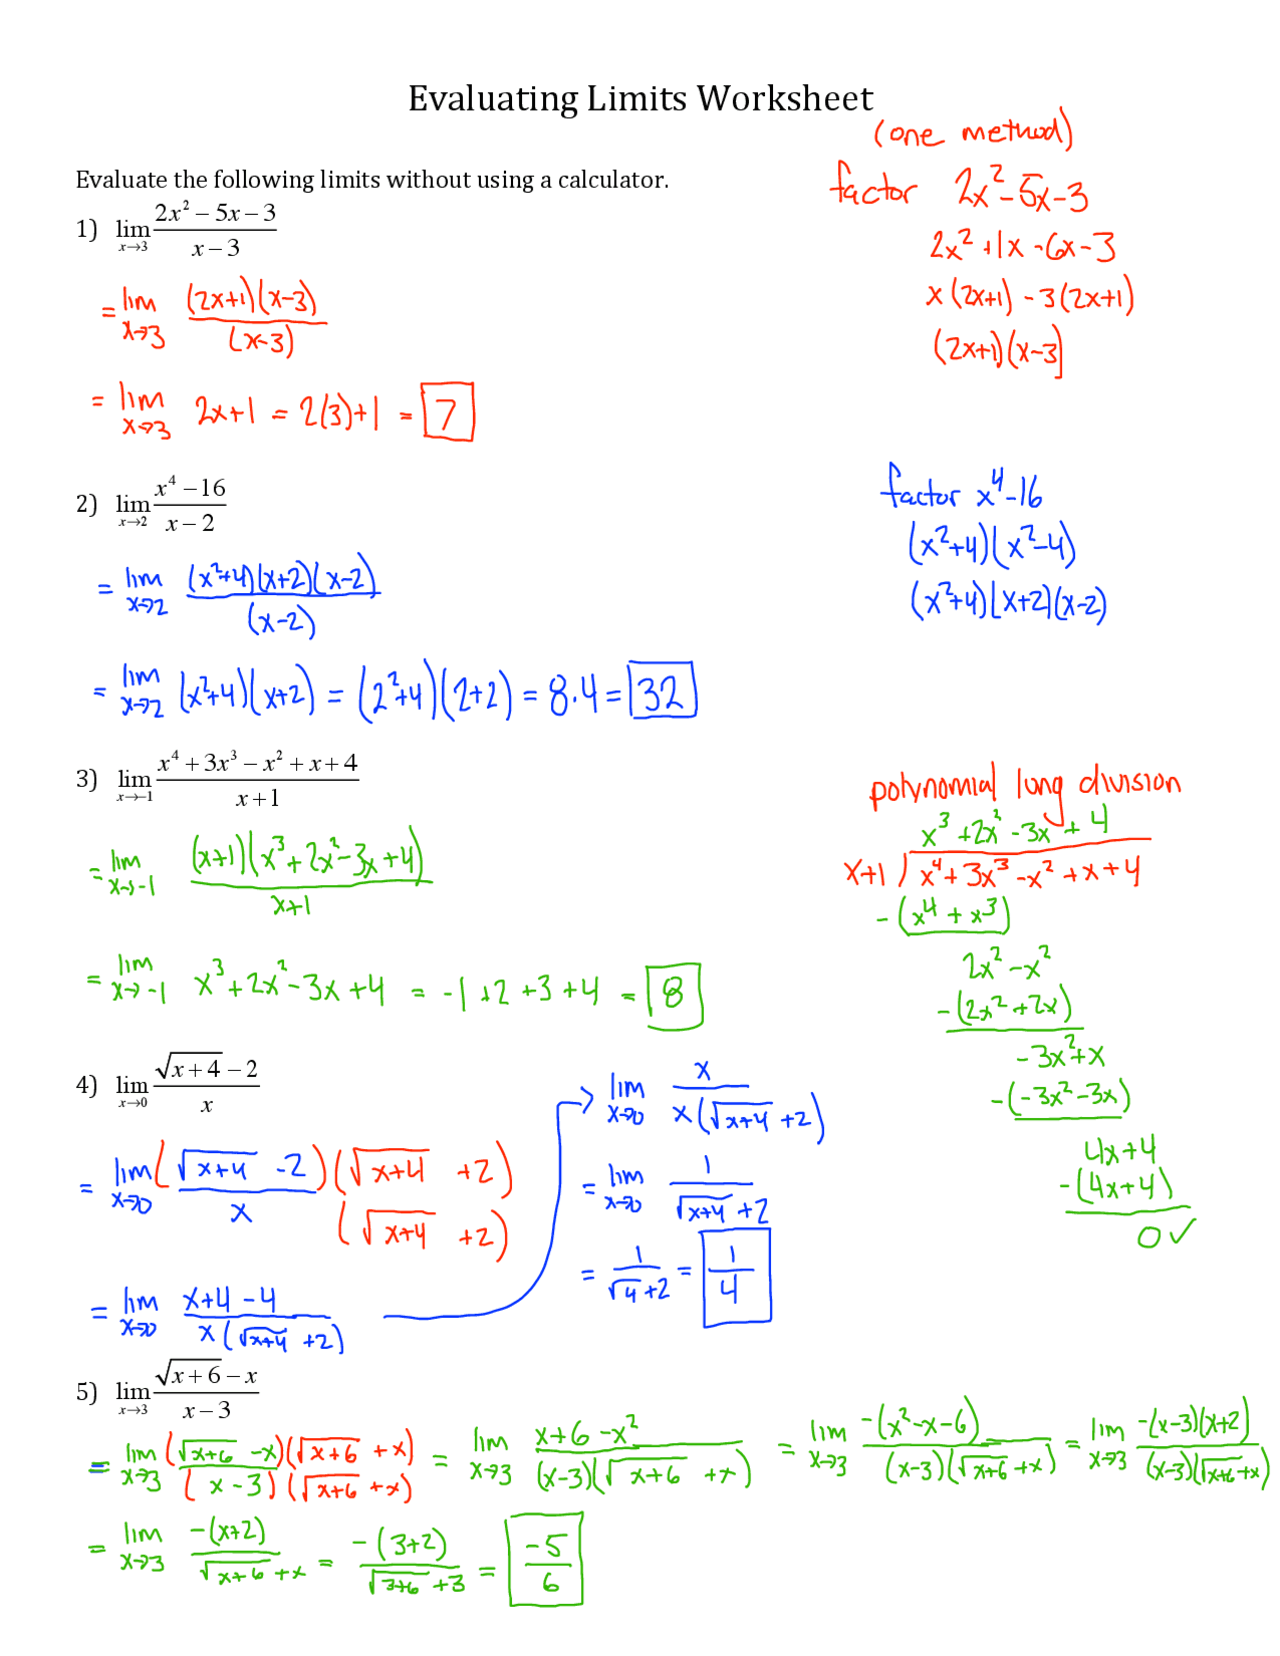 Evaluating Limits Worksheet
(one method)
Evaluate the following limits without using a calculator.
factor 2x² - 5x - 3
1) lim x→3 (2x² − 5x − 3)/(x − 3)
2x² + 1x - 6x - 3
= lim x→3 (2x+1)(x-3)/(x-3)
x(2x+1) - 3(2x+1)
(2x+1)(x-3)
= lim x→3 2x+1 = 2(3)+1 = 7
2) lim x→2 (x⁴ − 16)/(x − 2)
factor x⁴-16
(x²+4)(x²-4)
= lim x→2 (x²+4)(x+2)(x-2)/(x-2)
(x²+4)(x+2)(x-2)
= lim x→2 (x²+4)(x+2) = (2²+4)(2+2) = 8·4 = 32
3) lim x→−1 (x⁴ + 3x³ − x² + x + 4)/(x + 1)
polynomial long division
x³ + 2x² - 3x + 4
= lim x→-1 (x+1)(x³+2x²-3x+4)/(x+1)
x+1 ) x⁴ + 3x³ - x² + x + 4
- (x⁴ + x³)
2x² - x²
= lim x→-1 x³+2x²-3x+4 = -1+2+3+4 = 8
- (2x² + 2x)
-3x² + x
- (-3x² - 3x)
4x+4
- (4x+4)
0 ✓
4) lim x→0 (√(x + 4) − 2)/x
= lim x→0 ((√(x+4) - 2)/x) (√(x+4) + 2)/(√(x+4) + 2)
= lim x→0 (x+4-4)/(x(√(x+4) + 2))
→ lim x→0 x/(x(√(x+4) + 2))
= lim x→0 1/(√(x+4) + 2)
= 1/(√4 + 2) = 1/4
5) lim x→3 (√(x + 6) − x)/(x − 3)
= lim x→3 (√(x+6) - x)(√(x+6) + x)/((x-3)(√(x+6) + x)) = lim x→3 (x+6-x²)/((x-3)(√(x+6) + x)) = lim x→3 -(x²-x-6)/((x-3)(√(x+6) + x)) = lim x→3 -(x-3)(x+2)/((x-3)(√(x+6) + x))
= lim x→3 -(x+2)/(√(x+6) + x) = -(3+2)/(√(3+6) + 3) = -5/6